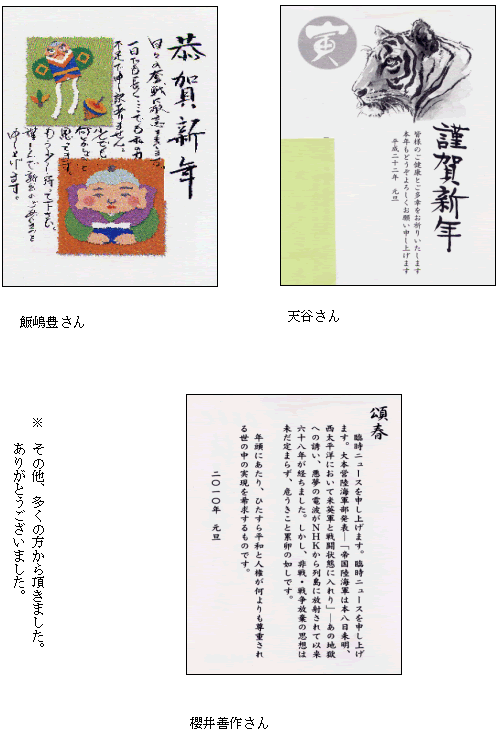 恭賀新年
謹賀新年
皆様のご健康とご多幸をお祈りいたします
本年もどうぞよろしくお願い申し上げます
平成二十二年　元旦
寅
飯嶋豊さん
天谷さん
頌春
臨時ニュースを申し上げます。臨時ニュースを申し上げ
ます。大本営陸海軍部発表―「帝国陸海軍は本八日未明、
西太平洋において米英軍と戦闘状態に入れり」―あの地獄
への誘い、悪夢の電波がNHKから列島に放射されて以来
六十八年が経ちました。しかし、非戦・戦争放棄の思想は
未だ定まらず、危うきこと累卵の如しです。
年頭にあたり、ひたすら平和と人権が何よりも尊重され
る世の中の実現を希求するものです。
二〇一〇年　元旦
※　その他、多くの方から頂きました。
ありがとうございました。
櫻井善作さん